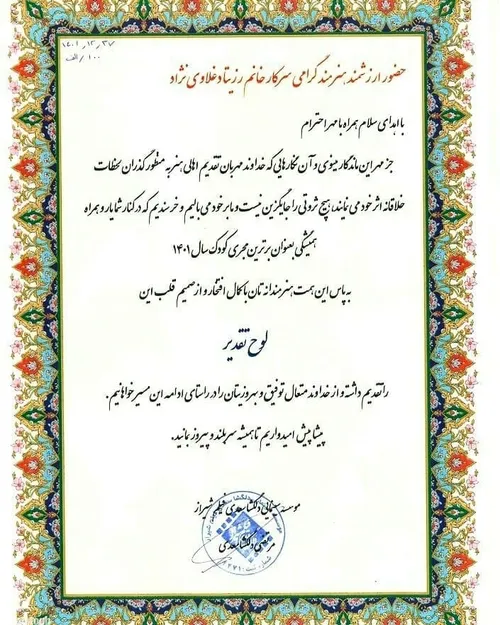 ۱۴۰۱/۱۲/۳۷
۱۰۰/الف
حضور ارزشمند هنرمند گرامی سرکار خانم رزیتا دغلاوی نژاد
با اهدای سلام همراه با مهر احترام
جز مهر این ماندگار مینوی و آن نگارهایی که خداوند مهربان تقدیم اهالی هنر به منظور گذران لحظات
خلاقانه اثر خود می نمایند، هیچ ثروتی را جایگزین نیست و ما بر خود می بالیم و خرسندیم که در کنار شما یار و همراه
همیشگی بعنوان برترین مجری کودک سال ۱۴۰۱
به پاس این همت هنرمندانه تان با کمال افتخار و از صمیم قلب این
لوح تقدیر
را تقدیم داشته و از خداوند متعال توفیق و بهروزیتان را در راستای ادامه این مسیر خواهانیم.
پیشاپیش امیدواریم تا همیشه سربلند و پیروز بمانید.
موسسه سینمایی دلگشا سعدی فیلم شیراز
مرتضی دلگشا سعدی